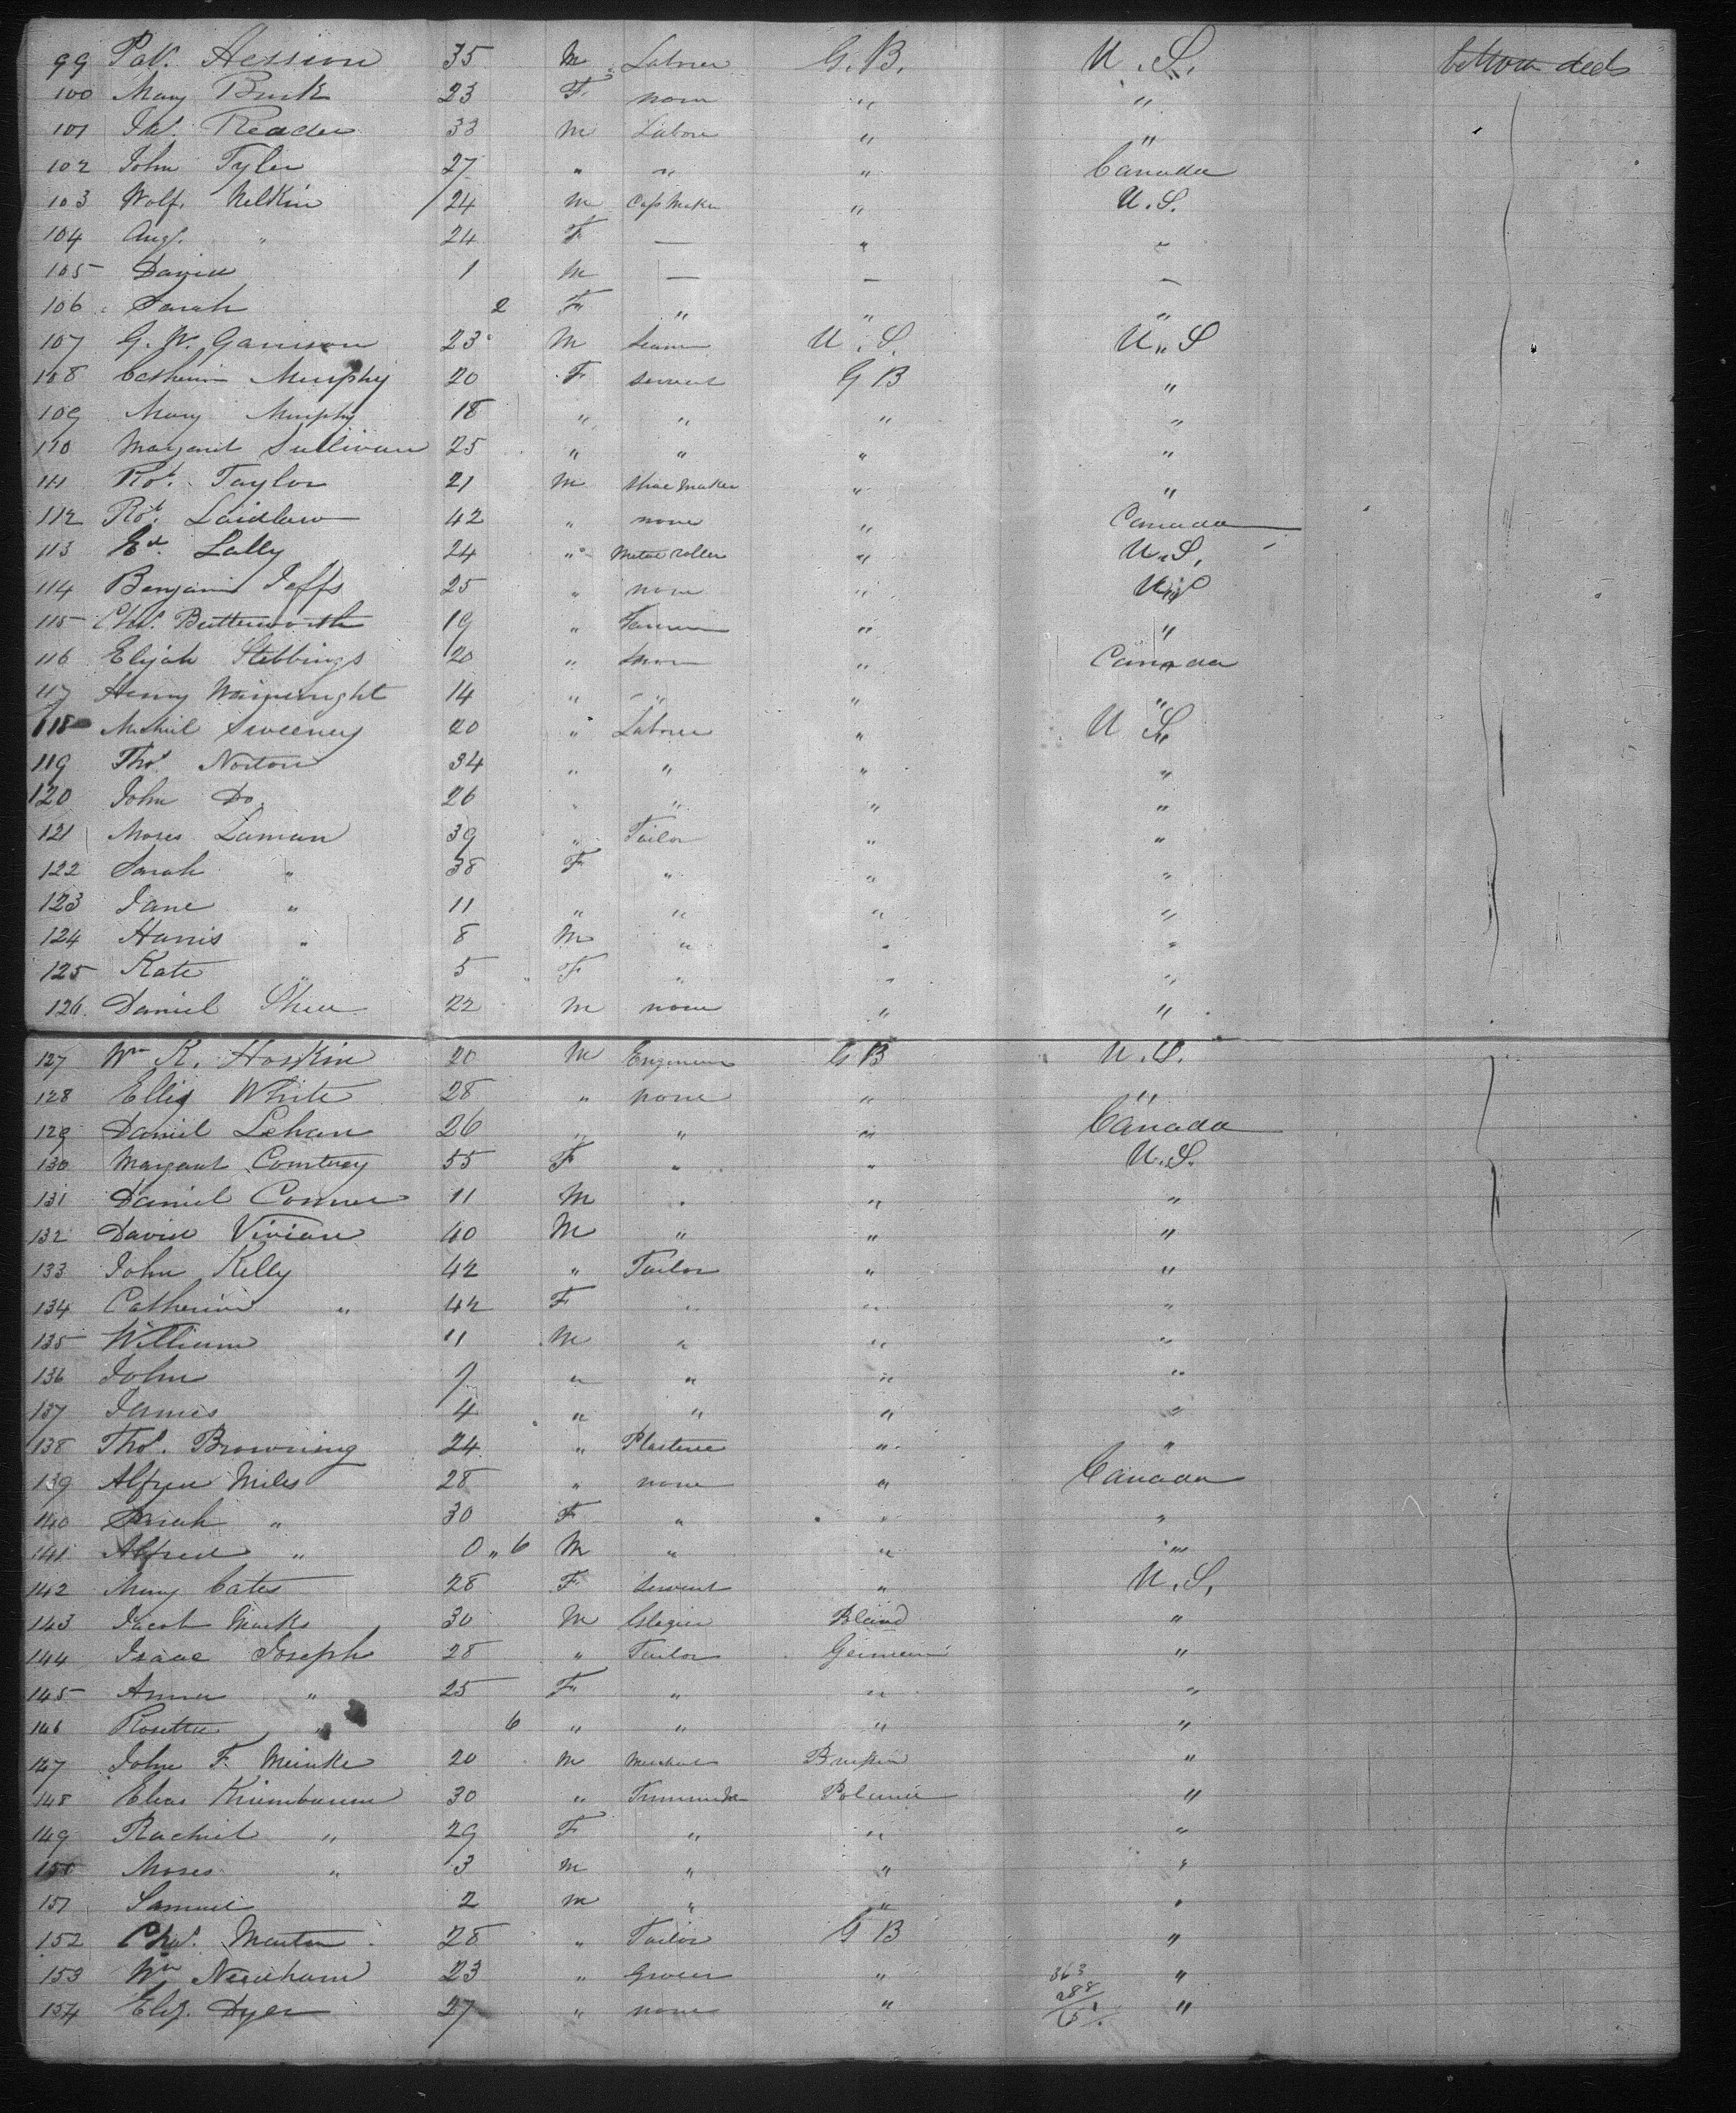 99 Pat. Hession 35 M Laborer G.B. U.S. between decks
100 Mary Burk 23 F none " "
101 Jas. Reader 33 M Labore " "
102 John Tyler 27 " " " Canada
103 Wolf. Nelkin 24 M Cap Maker " U.S.
104 Aug. " 24 F — " "
105 David 1 M — — —
106 Sarah 2 F " " "
107 G. W. Garrison 23 M U.S. U.S
108 Catherine Murphy 20 F servent G B "
109 Mary Murphy 18 " " " "
110 Margaret Sullivan 25 " " " "
111 Rot. Taylor 21 M Shoe Maker " "
112 Rot. Laidlaw 42 " none " Canada
113 Ed. Lally 24 " Metal roller " U.S.
114 Benjamin Jeffs 25 " none " U.S
115 Chas. Butterworth 19 " Farmer " "
116 Elijah Stebbings 20 " " Canada
117 Henry Wainwright 14 " " " "
118 Michael Sweeney 20 " Laborer " U S.
119 Thos. Norton 34 " " " "
120 John Do. 26 " " " "
121 Moses Laman 39 " Tailor " "
122 Sarah " 38 F " " "
123 Jane " 11 " " " "
124 Harris " 8 M " " "
125 Kate " 5 F " " "
126. Daniel Shea 22 M none " "
127 Wm K. Hoskin 20 M Engineer G B U.S.
128 Ellis White 28 " none " "
129 Daniel Lehan 26 " " " Canada
130 Margaret Courtney 55 F " " U.S.
131 Daniel Conner 11 M " " "
132 David Vivian 40 M " " "
133 John Kelly 42 " Tailor " "
134 Catherine " 42 F " " "
135 William 11 M " " "
136 John 7 " " " "
137 James 4 " " " "
138 Thos. Browning 24 " Plasterer " "
139 Alfred Miles 28 " none " Canada
140 Sarah " 30 F " " "
141 Alfred " 0 " 6 M " " "
142 Mary Cates 28 F Servent " U.S.
143 Jacob Marks 30 M Glazier "
144 Isaac Joseph 28 " Tailor German "
145 Anna " 25 F " " "
146 Rosetta " 6 " " " "
147 John F. Meinke 20 M "
148 Elias Kirimbaum 30 " "
149 Rachiel " 29 F " " "
150 Moses " 3 M " " "
151 Samuel 2 M " " "
152 Chas. Martin 28 " Tailor G B "
153 Wm Needham 23 " Grocer " "
154 Eliz. Dyer 27 " none " "